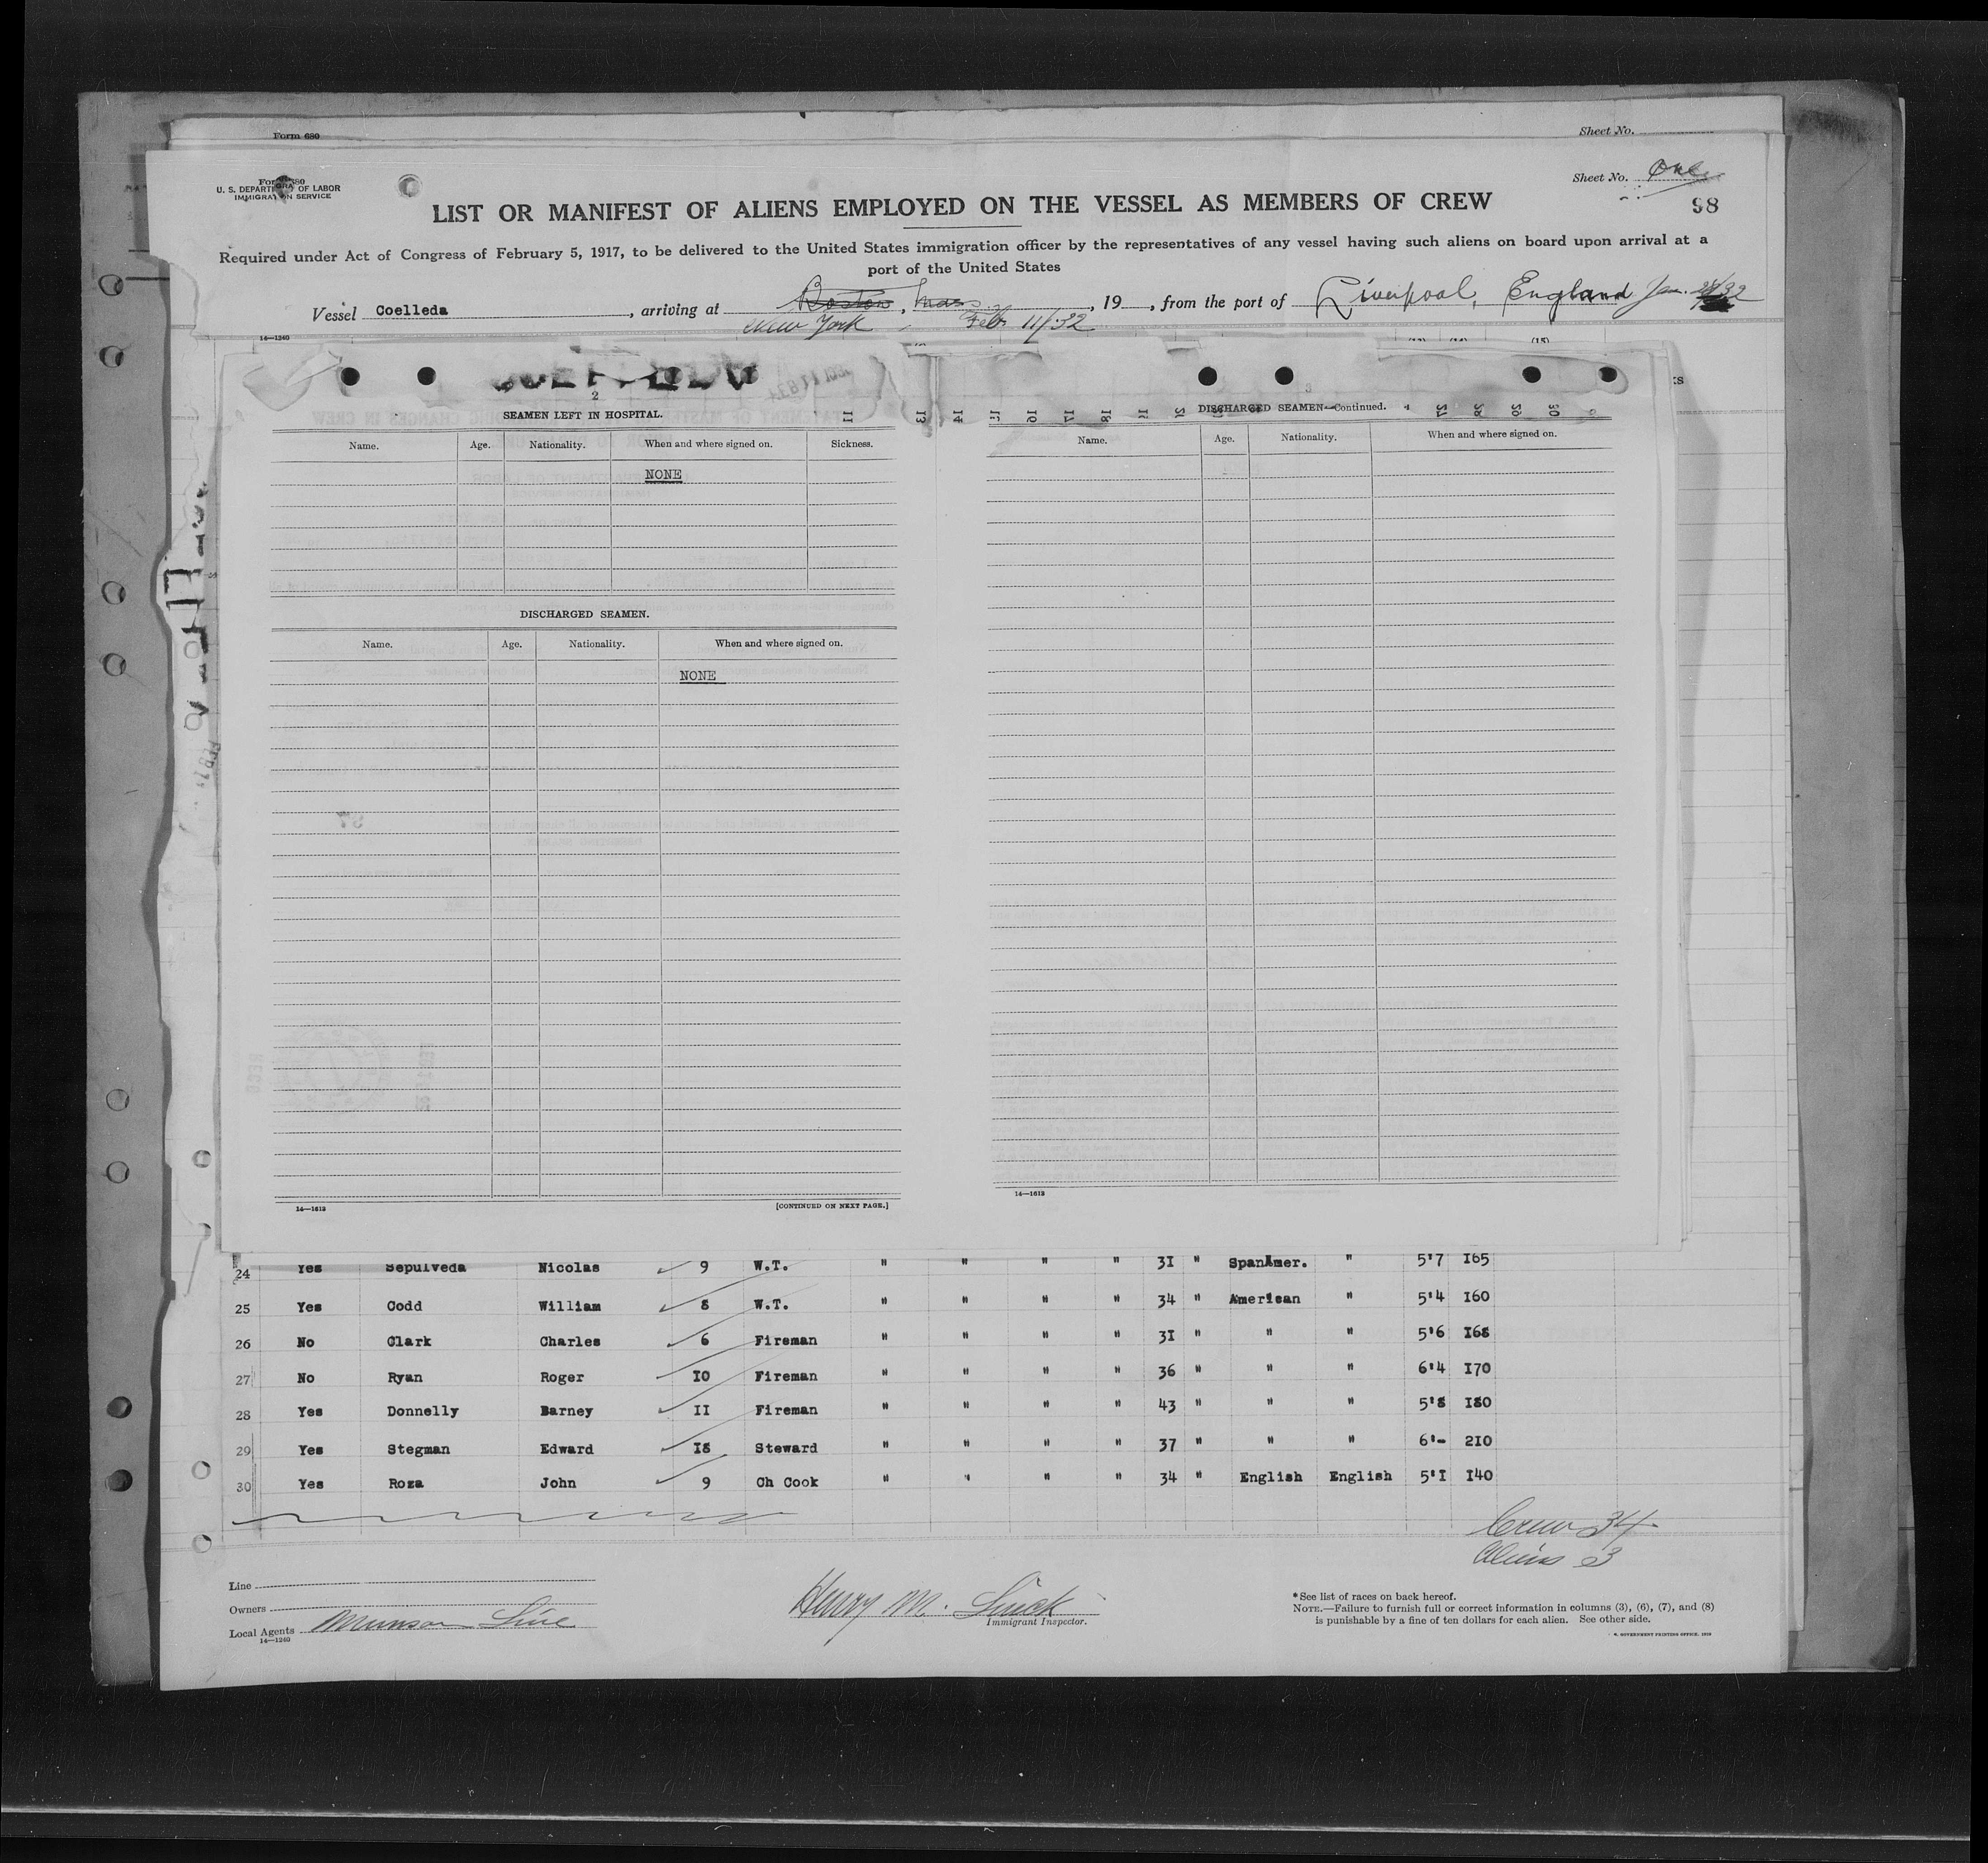 Form 680
Sheet No.
Form 680
U. S. DEPARTMENT OF LABOR
IMMIGRATION SERVICE
Sheet No. One
98
LIST OR MANIFEST OF ALIENS EMPLOYED ON THE VESSEL AS MEMBERS OF CREW
Required under Act of Congress of February 5, 1917, to be delivered to the United States immigration officer by the representatives of any vessel having such aliens on board upon arrival at a
port of the United States
Vessel Coelleda, arriving at Boston, Mass, 19, from the port of Liverpool, England Jan. 32
New York Feb 11/32
14—1240
2
SEAMEN LEFT IN HOSPITAL.
Name. Age. Nationality. When and where signed on. Sickness.
NONE
DISCHARGED SEAMEN.
Name. Age. Nationality. When and where signed on.
NONE
14—1613 [CONTINUED ON NEXT PAGE.]
3
DISCHARGED SEAMEN—Continued.
Name. Age. Nationality. When and where signed on.
14—1613
24 Yes Sepulveda Nicolas 9 W.T. " " " " 31 " SpanAmer. " 5'7 165
25 Yes Codd William 8 W.T. " " " " 34 " American " 5'4 160
26 No Clark Charles 6 Fireman " " " " 31 " " " 5'6 168
27 No Ryan Roger 10 Fireman " " " " 36 " " " 6'4 170
28 Yes Donnelly Barney 11 Fireman " " " " 43 " " " 5'8 180
29 Yes Stegman Edward 18 Steward " " " " 37 " " " 6'- 210
30 Yes Roza John 9 Ch Cook " " " " 34 " English English 5'1 140
Crew 34
Aliens 3
Line
Owners
Local Agents Munson Line
14—1240
Henry M.
Immigrant Inspector.
* See list of races on back hereof.
NOTE.—Failure to furnish full or correct information in columns (3), (6), (7), and (8)
is punishable by a fine of ten dollars for each alien. See other side.